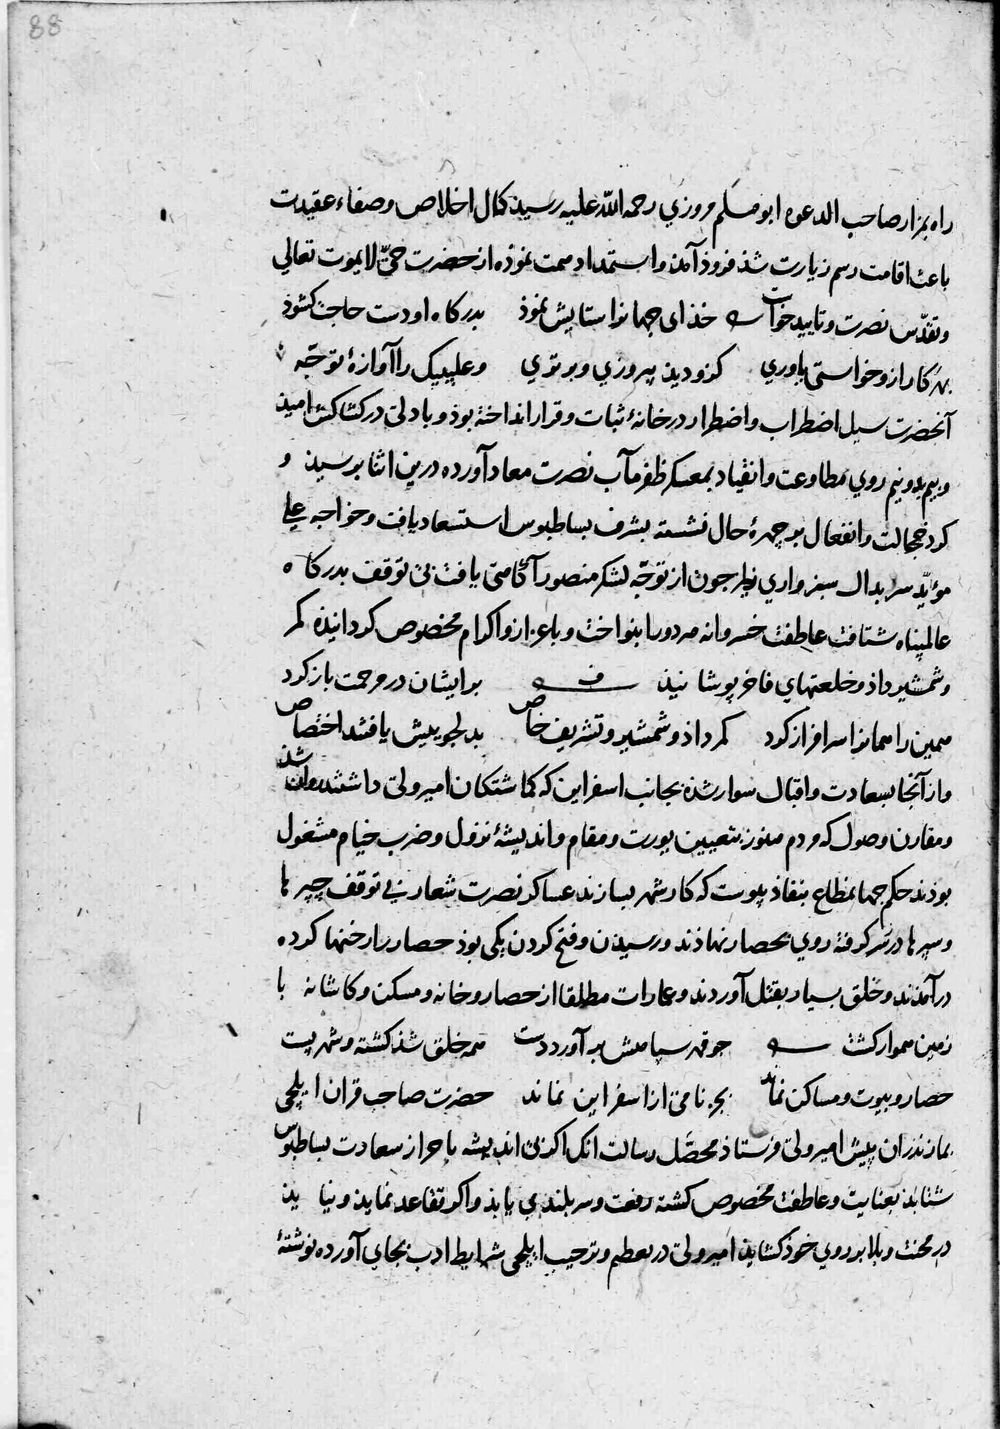 88
راه بمزار صاحب الدعوه ابو مسلم مروزي رحمه الله عليه رسيد كمال اخلاص و صفاء عقيدت
باعث اقامت رسم زيارت شد فروذ آمد و استمداد همت نموذه از حضرت حيّ لا يموت تعالي
و تقدّس نصرت و تاييد خواست خذاى جهانرا ستايش نموذ بدركاه او دست حاجت كشوذ
بهر كار ازو خواستى ياوري كزو ديد پيروزي و برتري و علي بيك را آوازۀ توجّه
آنحضرت سيل اضطراب و اضطرار در خانۀ ثبات و قرار انداخته بوذ و با دلى در كشاكش اميد
و بيم بدو نيم روي بمطاوعت و انقياد بمعسكر ظفر مآب نصرت معاد آورده درين اثنا برسيد و
كرد خجالت و انفعال بر چهرۀ حال نشسته بشرف بساطبوس استسعاد يافت و خواجه علي
مؤيّد سربدال سبزواري نيز چون از توجّه لشكر منصور آكاهى يافت بى توقف بدركاه
عالمپناه شتافت عاطفت خسروانه هر دو را بنواخت و باعزاز و اكرام مخصوص كردانيده كمر
و شمشير داذ و خلعتهاي فاخر پوشانيذ بر ايشان در مرحمت باز كرد
همين را همانرا سرافراز كرد كمر داذ و شمشير و تشريف خاص بدلجوييش يافتند اختصاص
و از آنجا بسعادت و اقبال سوار شذه بجانب اسفراين كه كماشتكان امير ولى داشتند روان شذ
و مقارن وصول كه مردم هنوز بتعيين يورت و مقام و انديشۀ نزول و ضرب خيام مشغول
بودند حكم جهانمطاع بنفاذ پيوست كه كار شهر بسازند عساكر نصرت شعار بى توقف چپرها
و سپرها در سر كرفته روي بحصار نهاذند و رسيدن و فتح كردن يكى بوذ حصار را رخنها كرده
درآمدند و خلق بسيار بقتل آوردند و عمارات مطلقا از حصار و خانه و مسكن و كاشانه با
زمين هموار كشت چو قهر سپاهش برآورد دست همه خلق شذ كشته و شهر پست
حصار و بيوت و مساكن نماند بجز نامى از اسفراين نماند حضرت صاحب قران ايلچى
بمازندران پيش امير ولى فرستاذ محصّل رسالت انك اكر بى انديشه باحراز سعادت بساطبوس
شتابذ بعنايت و عاطفت مخصوص كشته رفعت و سربلندي يابذ و اكر تقاعد نمايذ و نيايد
در محنت و بلا بر روي خوذ كشايذ امير ولى در تعظيم و ترحيب ايلچى شرايط ادب بجاي آورده نوشتۀ